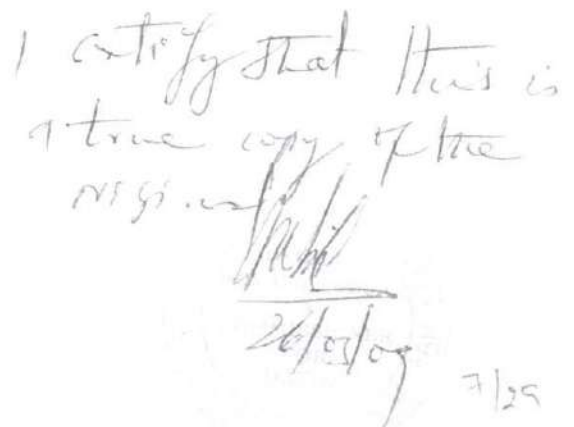 I certify that this is
a true copy of the
original
26/03/09
7/29